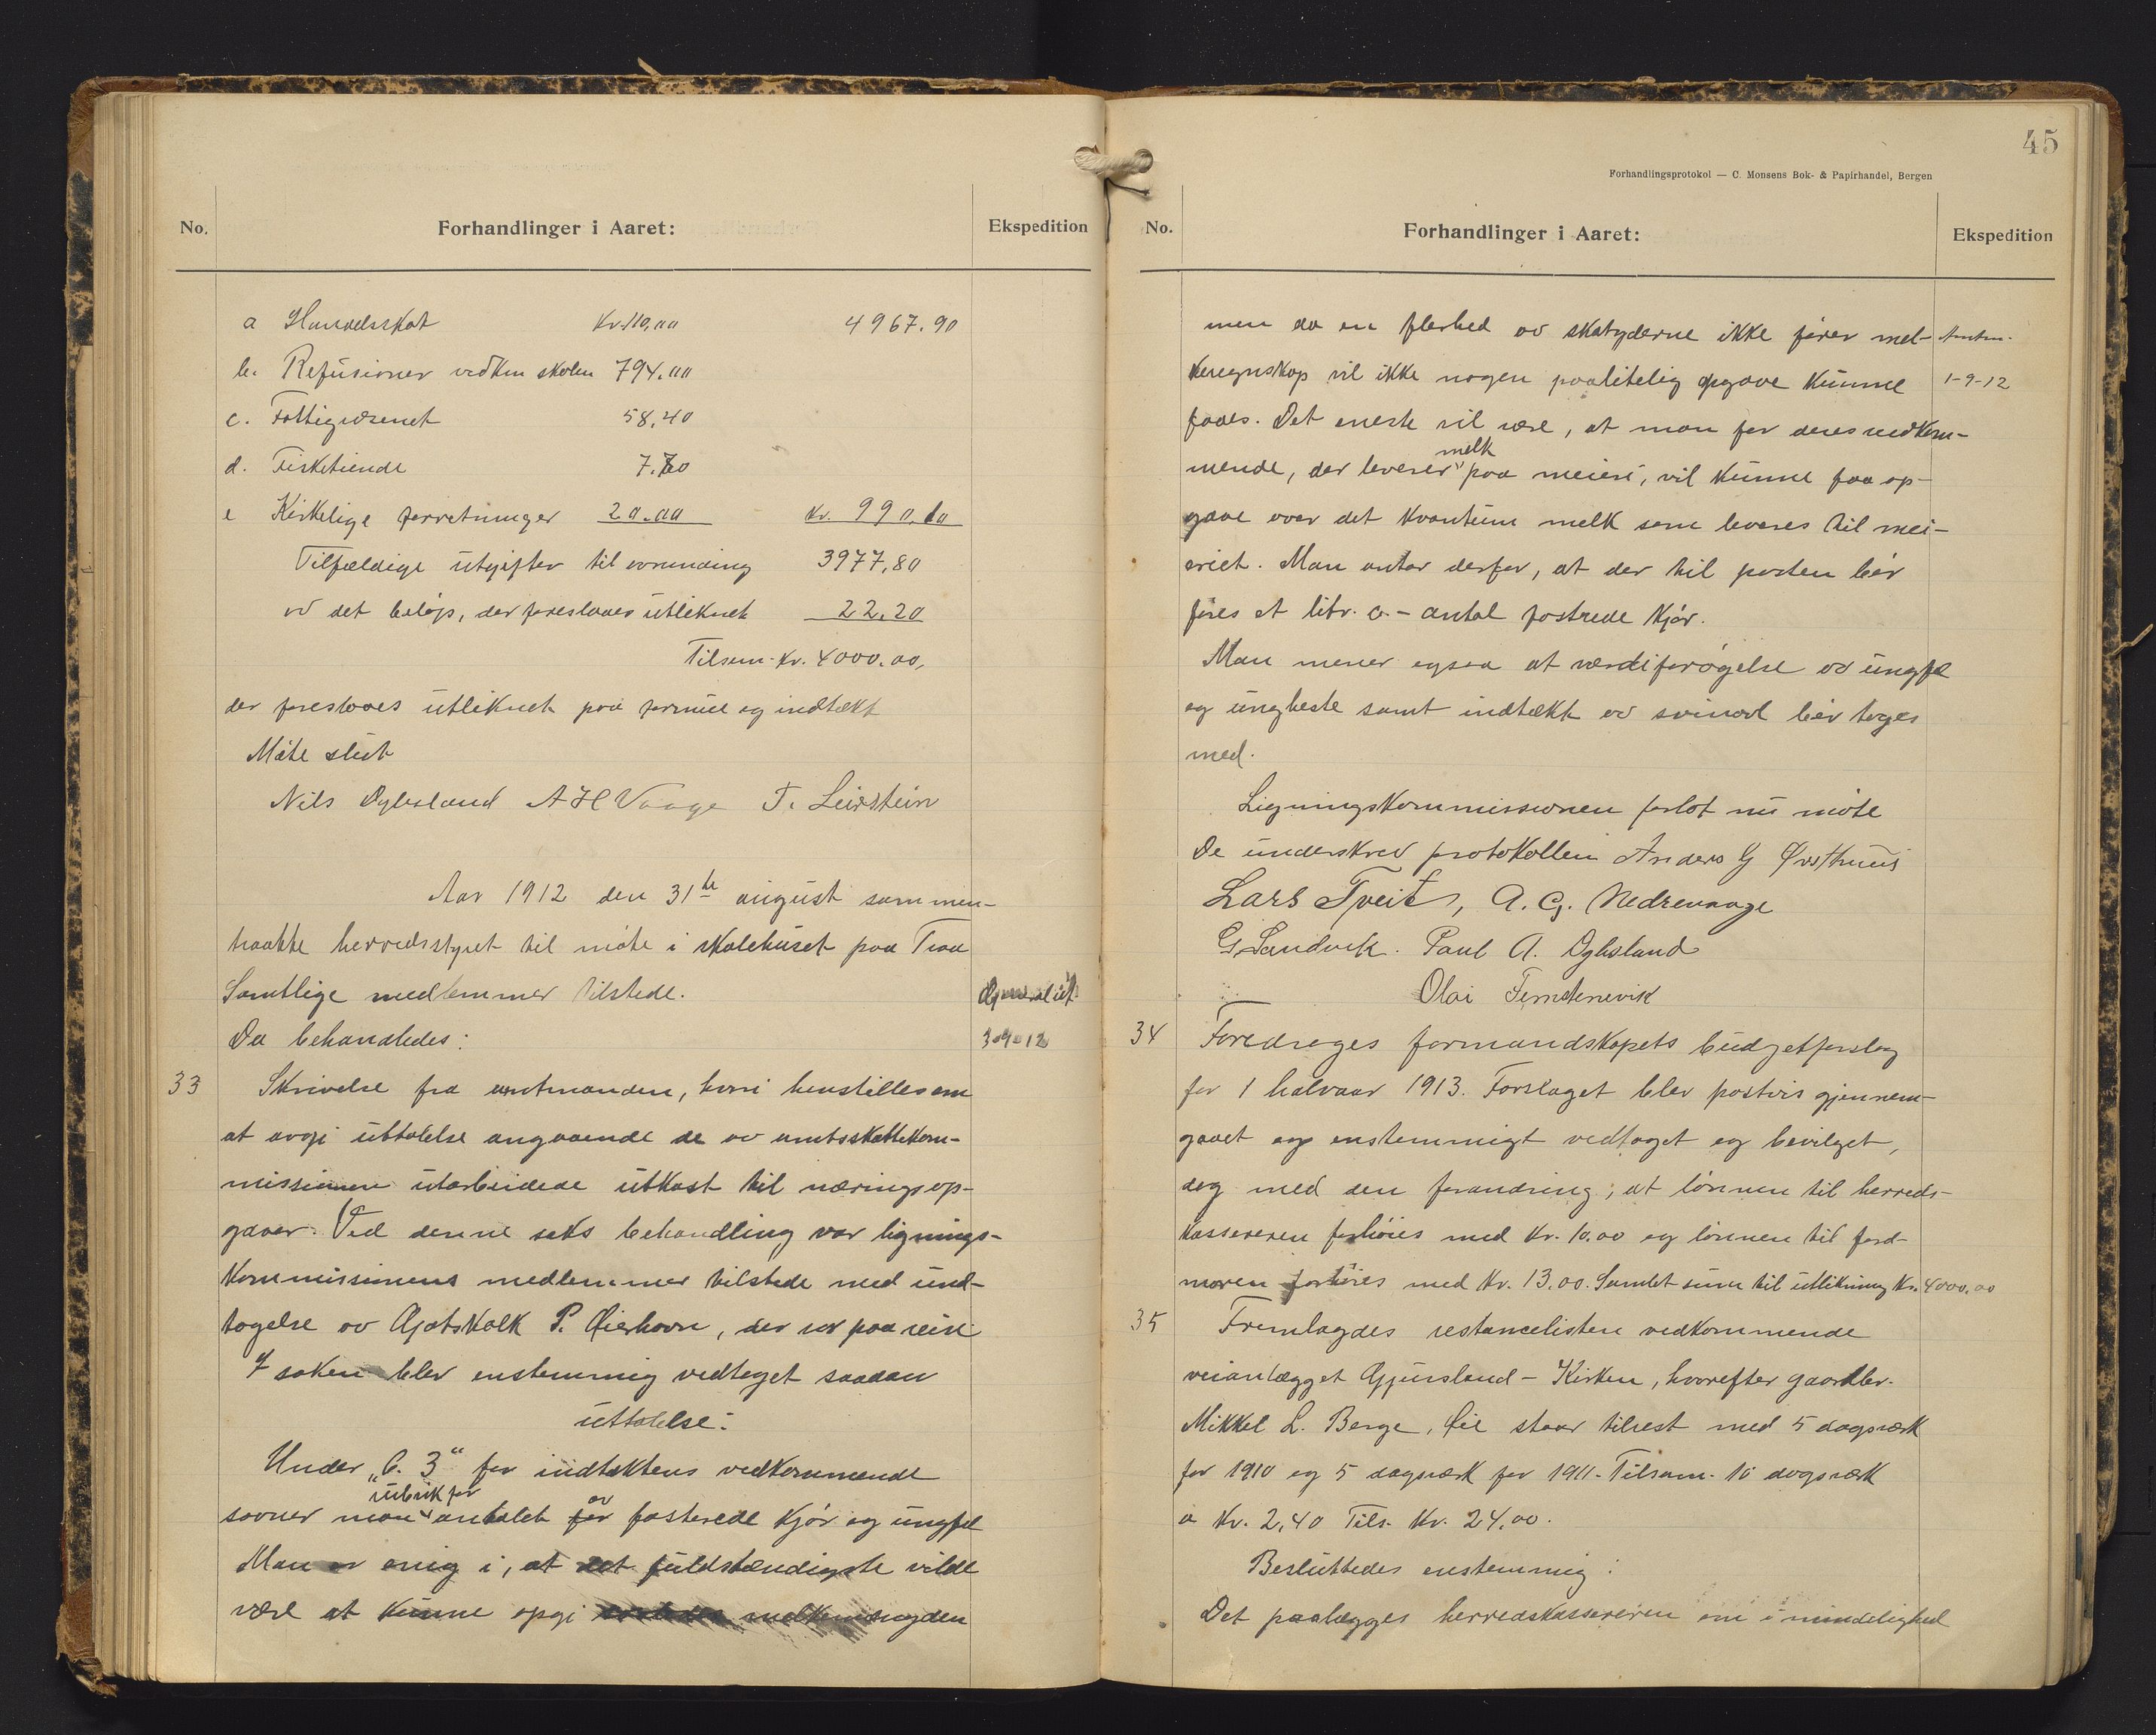 No.
Forhandlinger i Aaret:
Ekspedition
a Handelsskat Kr. 110,00 4967.90
b. Refusioner vedkm skolen 794.00
c. Fattigvæsenet 58,40
d. Fisketiende 7.70
e Kirkelige forretninger 20.00 Kr. 990,10
Tilfældige utgifter til avrunding 3977,80
av det beløp, der foreslaaes utliknet 22,20
Tilsam. Kr. 4000.00,
der foreslaaes utliknet paa formue og indtækt
Møte slut
Nils Øglesland A H Vaage T. Leirstein
Aar 1912 den 31te august sammen-
traatte herredsstyret til møte i skolehuset paa Traa
Samtlige medlemmer tilstede.
Da behandledes:
3-9-12
33 Skrivelse fra amtmanden, hvori henstilles om
at avgi uttalelse angaaende de av amtsskattekom-
missionen utarbeidede utkast til næringsop-
gaver. Ved denne saks behandling var lignings-
kommissionens medlemmer tilstede med und-
tagelse av Gjøtskalk P. Øierhavn, der var paa reise
I saken blev enstemmig vedtaget saadan
uttalelse:
Under „C. 3“ for indtæktens vedkommende
rubrik for
savner man antalet for av fosterede kjør og ungfæ
Man er enig i, at det fuldstændigste vilde
være at kunne opgi melkemængden
45
Forhandlingsprotokol — C. Monsens Bok- & Papirhandel, Bergen
No.
Forhandlinger i Aaret:
Ekspedition
men da en flerhed av skatyderne ikke fører mel- Amtm.
keregnskap vil ikke nogen paalitelig opgave kunne 1-9-12
faaes. Det eneste vil være, at man for deres vedkom-
melk
mende, der leverer paa meieri, vil kunne faa op-
gave over det kvantum melk som leveres til mei-
eriet. Man antar derfor, at der til posten bør
føies et litr. a. - antal fostrede kjør.
Man mener ogsaa at værdiforøgelse av ungfæ
og ungheste samt indtækt av svineavl bør tages
med.
Ligningskommissionen forlot nu møte
De underskrev protokollen Anders G Østhuus
Lars Tveit, A. G. Nedrevaage
G. Sandvik. Paul A. Øglesland
Olai Femstenevik
34 Foredrages formandskapets budgetforslag
for 1 halvaar 1913. Forslaget blev postvis gjennem-
gaaet og enstemmigt vedtaget og bevilget,
dog med den forandring, at lønnen til herreds-
kassereren forhøies med Kr. 10.00 og lønnen til jord-
moren forhøies med Kr. 13.00. Samlet sum til utlikning Kr. 4000.00
35 Fremlagdes restancelisten vedkommende
veianlægget Gjuusland - Kirken, hvorefter gaardbr.
Mikkel L. Berge, Øie staar tilrest med 5 dagsværk
for 1910 og 5 dagsværk for 1911. Tilsam. 10 dagsværk
a Kr. 2,40 Tils. Kr. 24.00.
Besluttedes enstemmig:
Det paalægges herredskassereren om i mindelighed